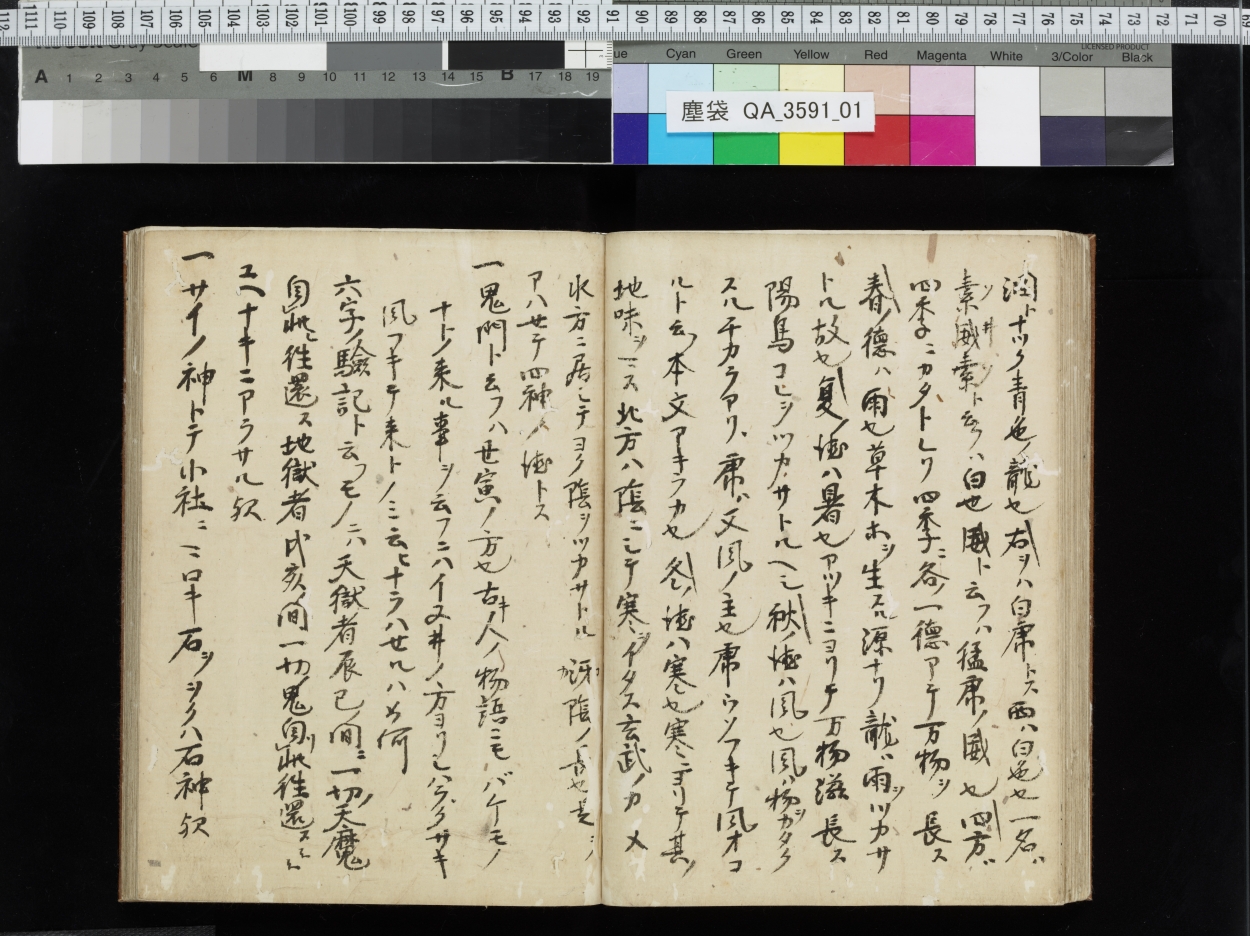 塵袋 QA_3591_01
Cyan Green Yellow Red Magenta White 3/Color Black
LICENSED PRODUCT
A 1 2 3 4 5 6 M 8 9 10 11 12 13 14 15 B 17 18 19
トナツク青色ノ龍也右ヲハ白虎トス西ハ白色也一名ハ
素威素ト云フハ白也威ト云フハ猛虎ノ威也四方ハ
四季ニカタトレリ四季ニ各一徳アテ万物ヲ長ス
春ノ徳ハ雨也草木ホヲ生スル源ナリ龍ハ雨ヲツカサ
トル故也夏ノ徳ハ暑也アツキニヨリテ万物滋長ス
陽鳥コレヲツカサトルヘシ秋ノ徳ハ風也風ハ物ヲカタク
スルチカラアリ虎ハ又風ノ主也虎ウソフキテ風オコ
ルト云本文アキラカ也冬ノ徳ハ寒也寒ニヨリテ其ノ
地味ヲシス北方ハ陰ニシテ寒ヲイタス玄武ノカメ
水方ニ居シテヨク陰ヲツカサトル
アハセテ四神ノ徳トス
一鬼門ト云フハ丑寅ノ方也古キ人ノ物語ニモバケモノ
ナトノ来ル事ヲ云フニハイヌ井ノ方ヨリ
風フキテ来トノミ云ヒナラハセルハ如何
六字ノ驗記ト云フモノニハ天獄者辰巳ノ間ニ一切ノ天魔
自此往還ス地獄者戌亥ノ間一切ノ鬼自此往還スト
ユヘナキニアラサル歟
一サイノ神トテ小社ニマロキ石ヲヲクハ石神歟